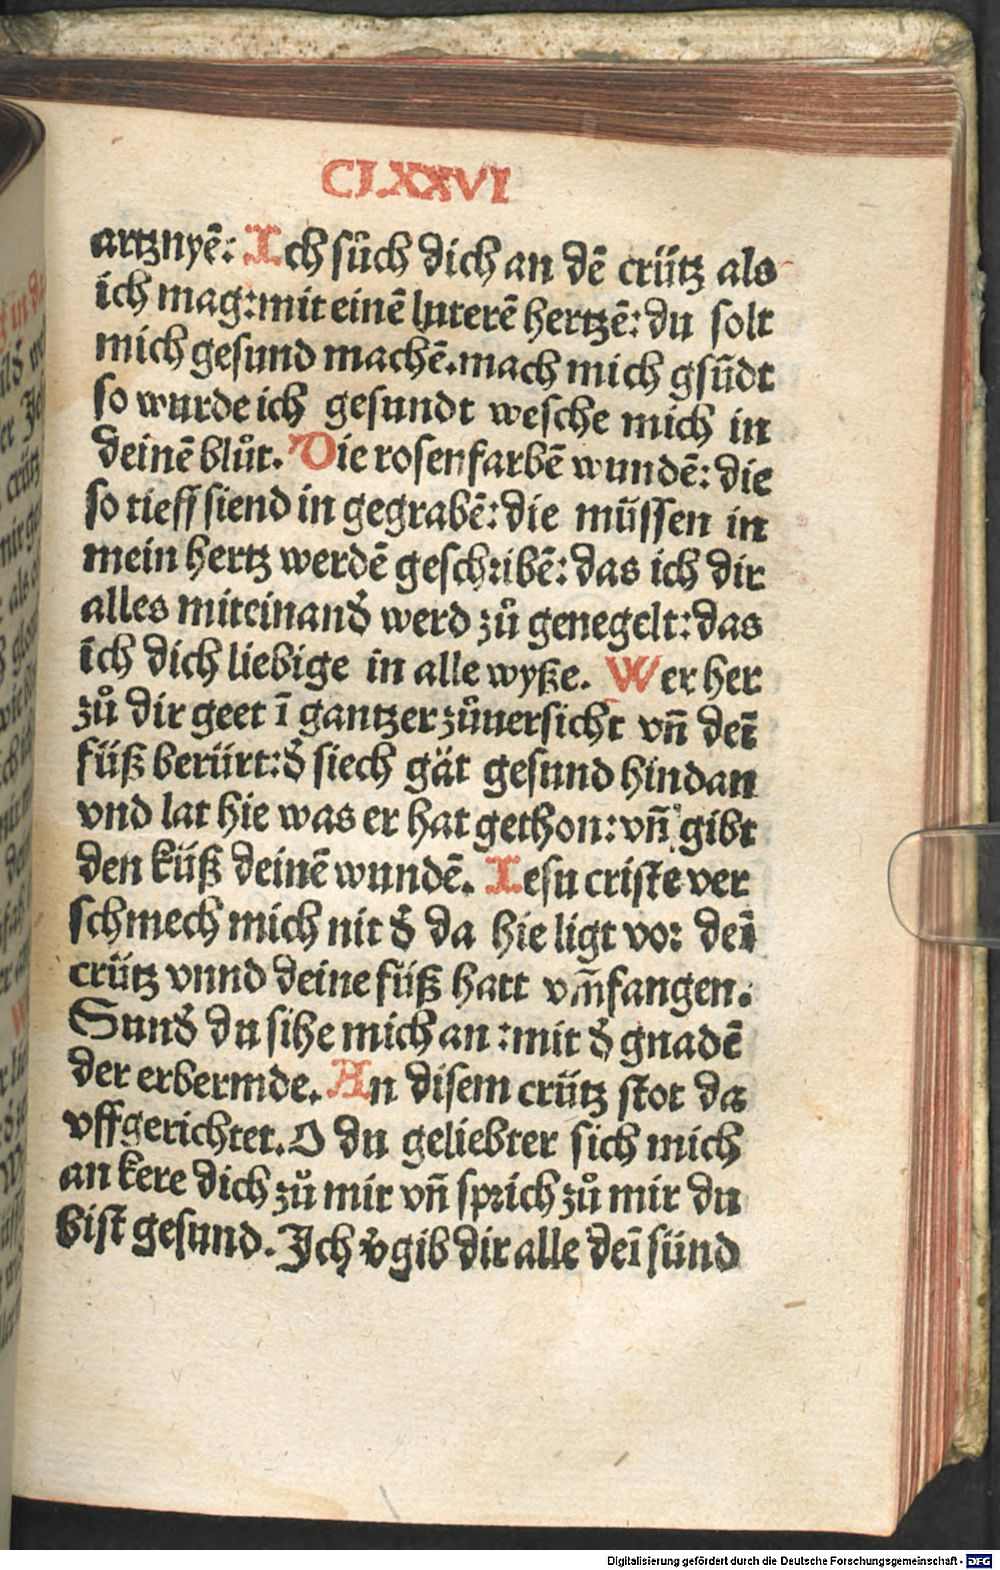 CLXXVI
artznyē: Ich sůch dich an dē crütz als
ich mag: mit einē luterē hertzē: du solt
mich gesund machē. mach mich gsūdt
so wurde ich gesundt wesche mich in
deinē blůt. Die rosenfarbē wundē: die
so tieff siend in gegrabē: die müssen in
mein hertz werdē geschribē: das ich dir
alles miteinand' werd zů genegelt: das
ich dich liebige in alle wyße. Wer her
zů dir geet ī gantzer zůuersicht vn̄ deī
füß berürt: d' siech gät gesund hindan
vnd lat hie was er hat gethon: vn̄ gibt
den küß deinē wundē. Iesu criste ver
schmech mich nit d' da hie ligt vor deī
crütz vnnd deine füß hatt vm̄fangen.
Sund' du sihe mich an : mit d' gnadē
der erbermde. An disem crütz stot da
vffgerichtet. O du geliebter sich mich
an kere dich zů mir vn̄ sprich zů mir du
bist gesund. Ich v'gib dir alle deī sünd
Digitalisierung gefördert durch die Deutsche Forschungsgemeinschaft - DFG